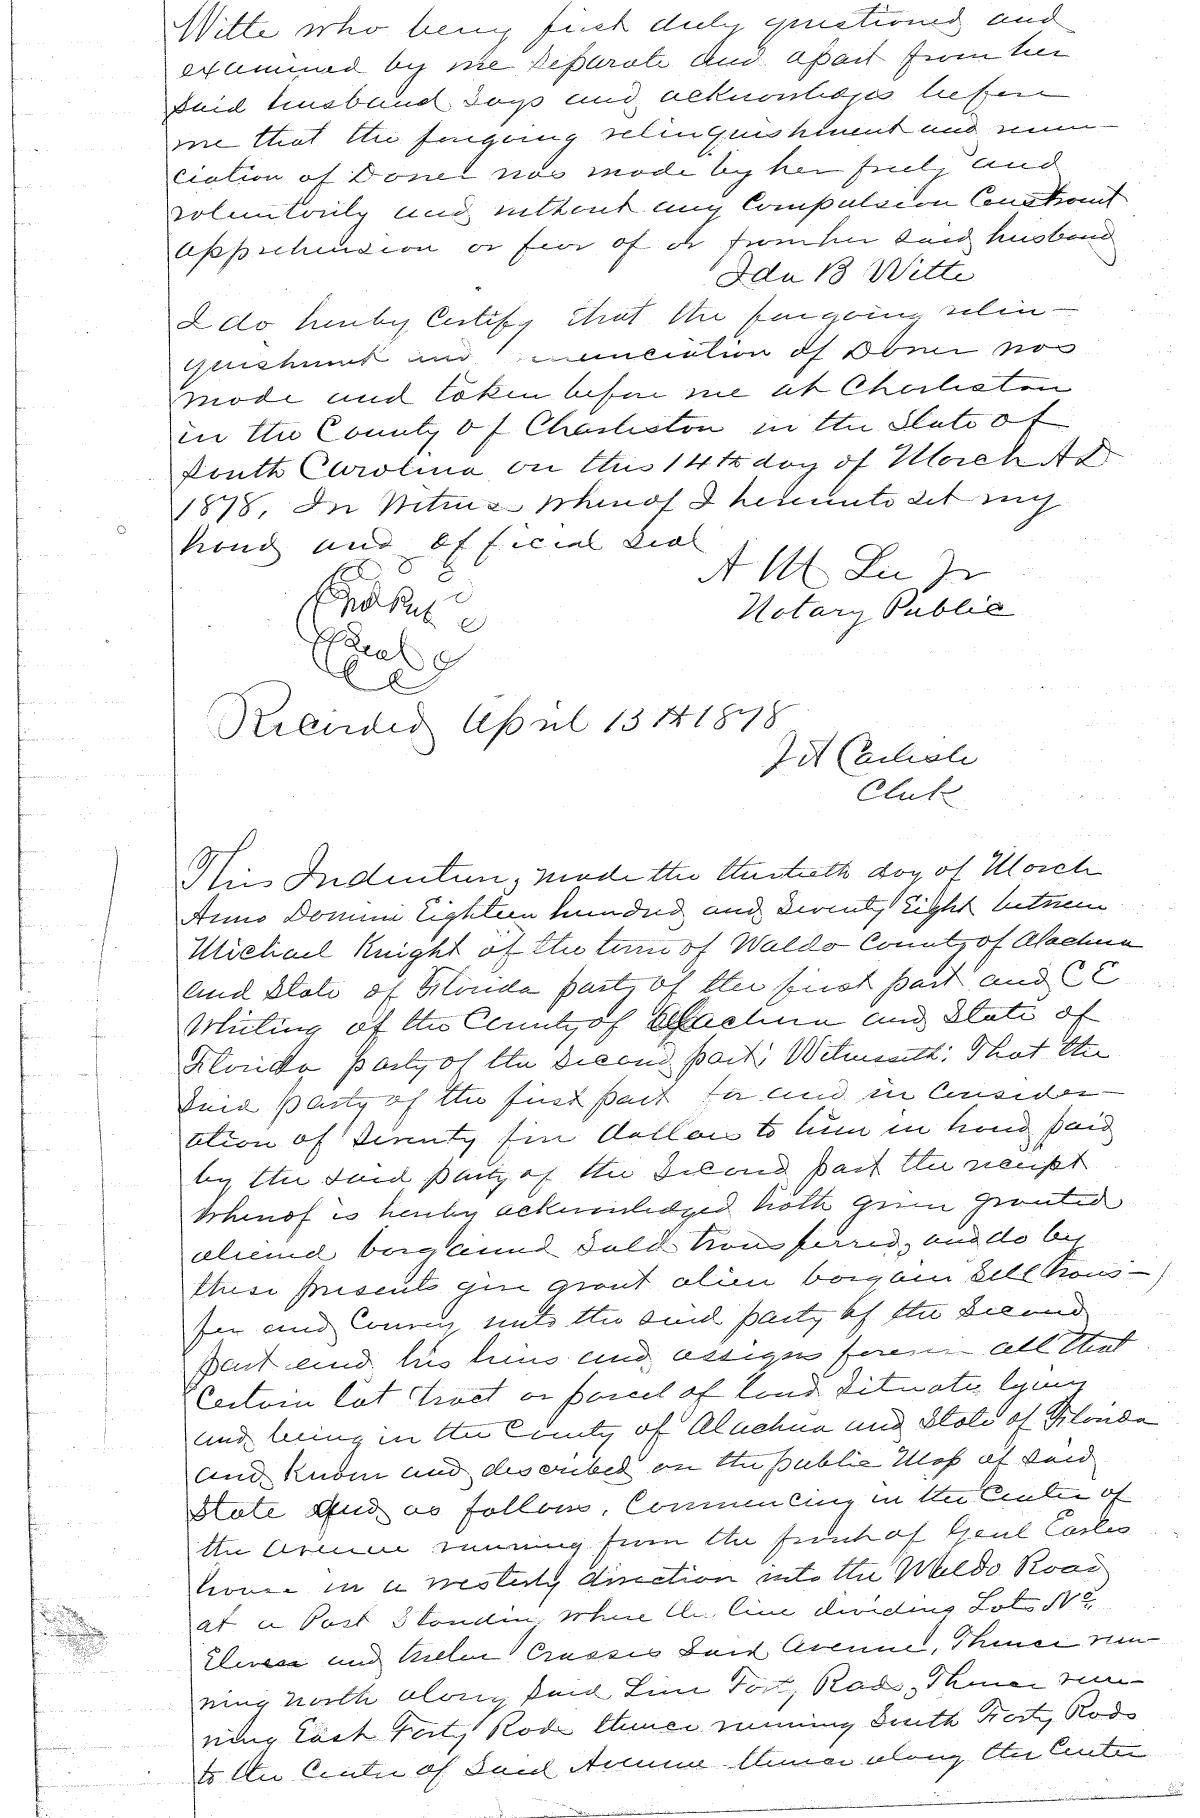 Witte who being first duly questioned and
examined by me separate and apart from her
said husband says and acknowledges before
me that the foregoing relinquishment and renun-
ciation of Dower was made by her freely and
voluntarily and without any Compulsion Constraint
apprehension or fear of or from her said husband
Ida B Witte
I do hereby Certify that the foregoing relin-
quishment and renunciation of Dower was
made and taken before me at Charleston
in the County of Charleston in the State of
South Carolina on this 14th day of March AD
1878, In Witness Whereof I hereunto set my
hand and official seal
A M Lee Jr
Notary Public
Not Pub
Seal
Recorded April 13th 1878
J A Carlisle
Clerk
This Indenture, made the thirtieth day of March
Anno Domini Eighteen hundred and Seventy Eight between
Michael Knight of the town of Waldo County of Alachua
and State of Florida party of the first part and C E
Whiting of the County of Alachua and State of
Florida party of the second part; Witnesseth: That the
said party of the first part for and in Consider-
ation of Seventy five dollars to him in hand paid
by the said party of the Second part the receipt
Whereof is hereby acknowledged hath given granted
aliened bargained Sold transferred, and do by
these presents give grant alien bargain Sell trans-
fer and Convey unto the said party of the Second
part and his heirs and assigns forever all that
Certain lot tract or parcel of land Situate lying
and being in the County of Alachua and State of Florida
and known and described on the public Map of said
State and as follows, Commencing in the Center of
the avenue running from the front of Genl Earles
house in a westerly direction into the Waldo Road
at a Post Standing where the line dividing Lots No
Eleven and twelve Crosses Said Avenue, Thence run-
ning north along said Line Forty Rods, Thence run-
ning East Forty Rods thence running South Forty Rods
to the Center of Said Avenue thence along the Center